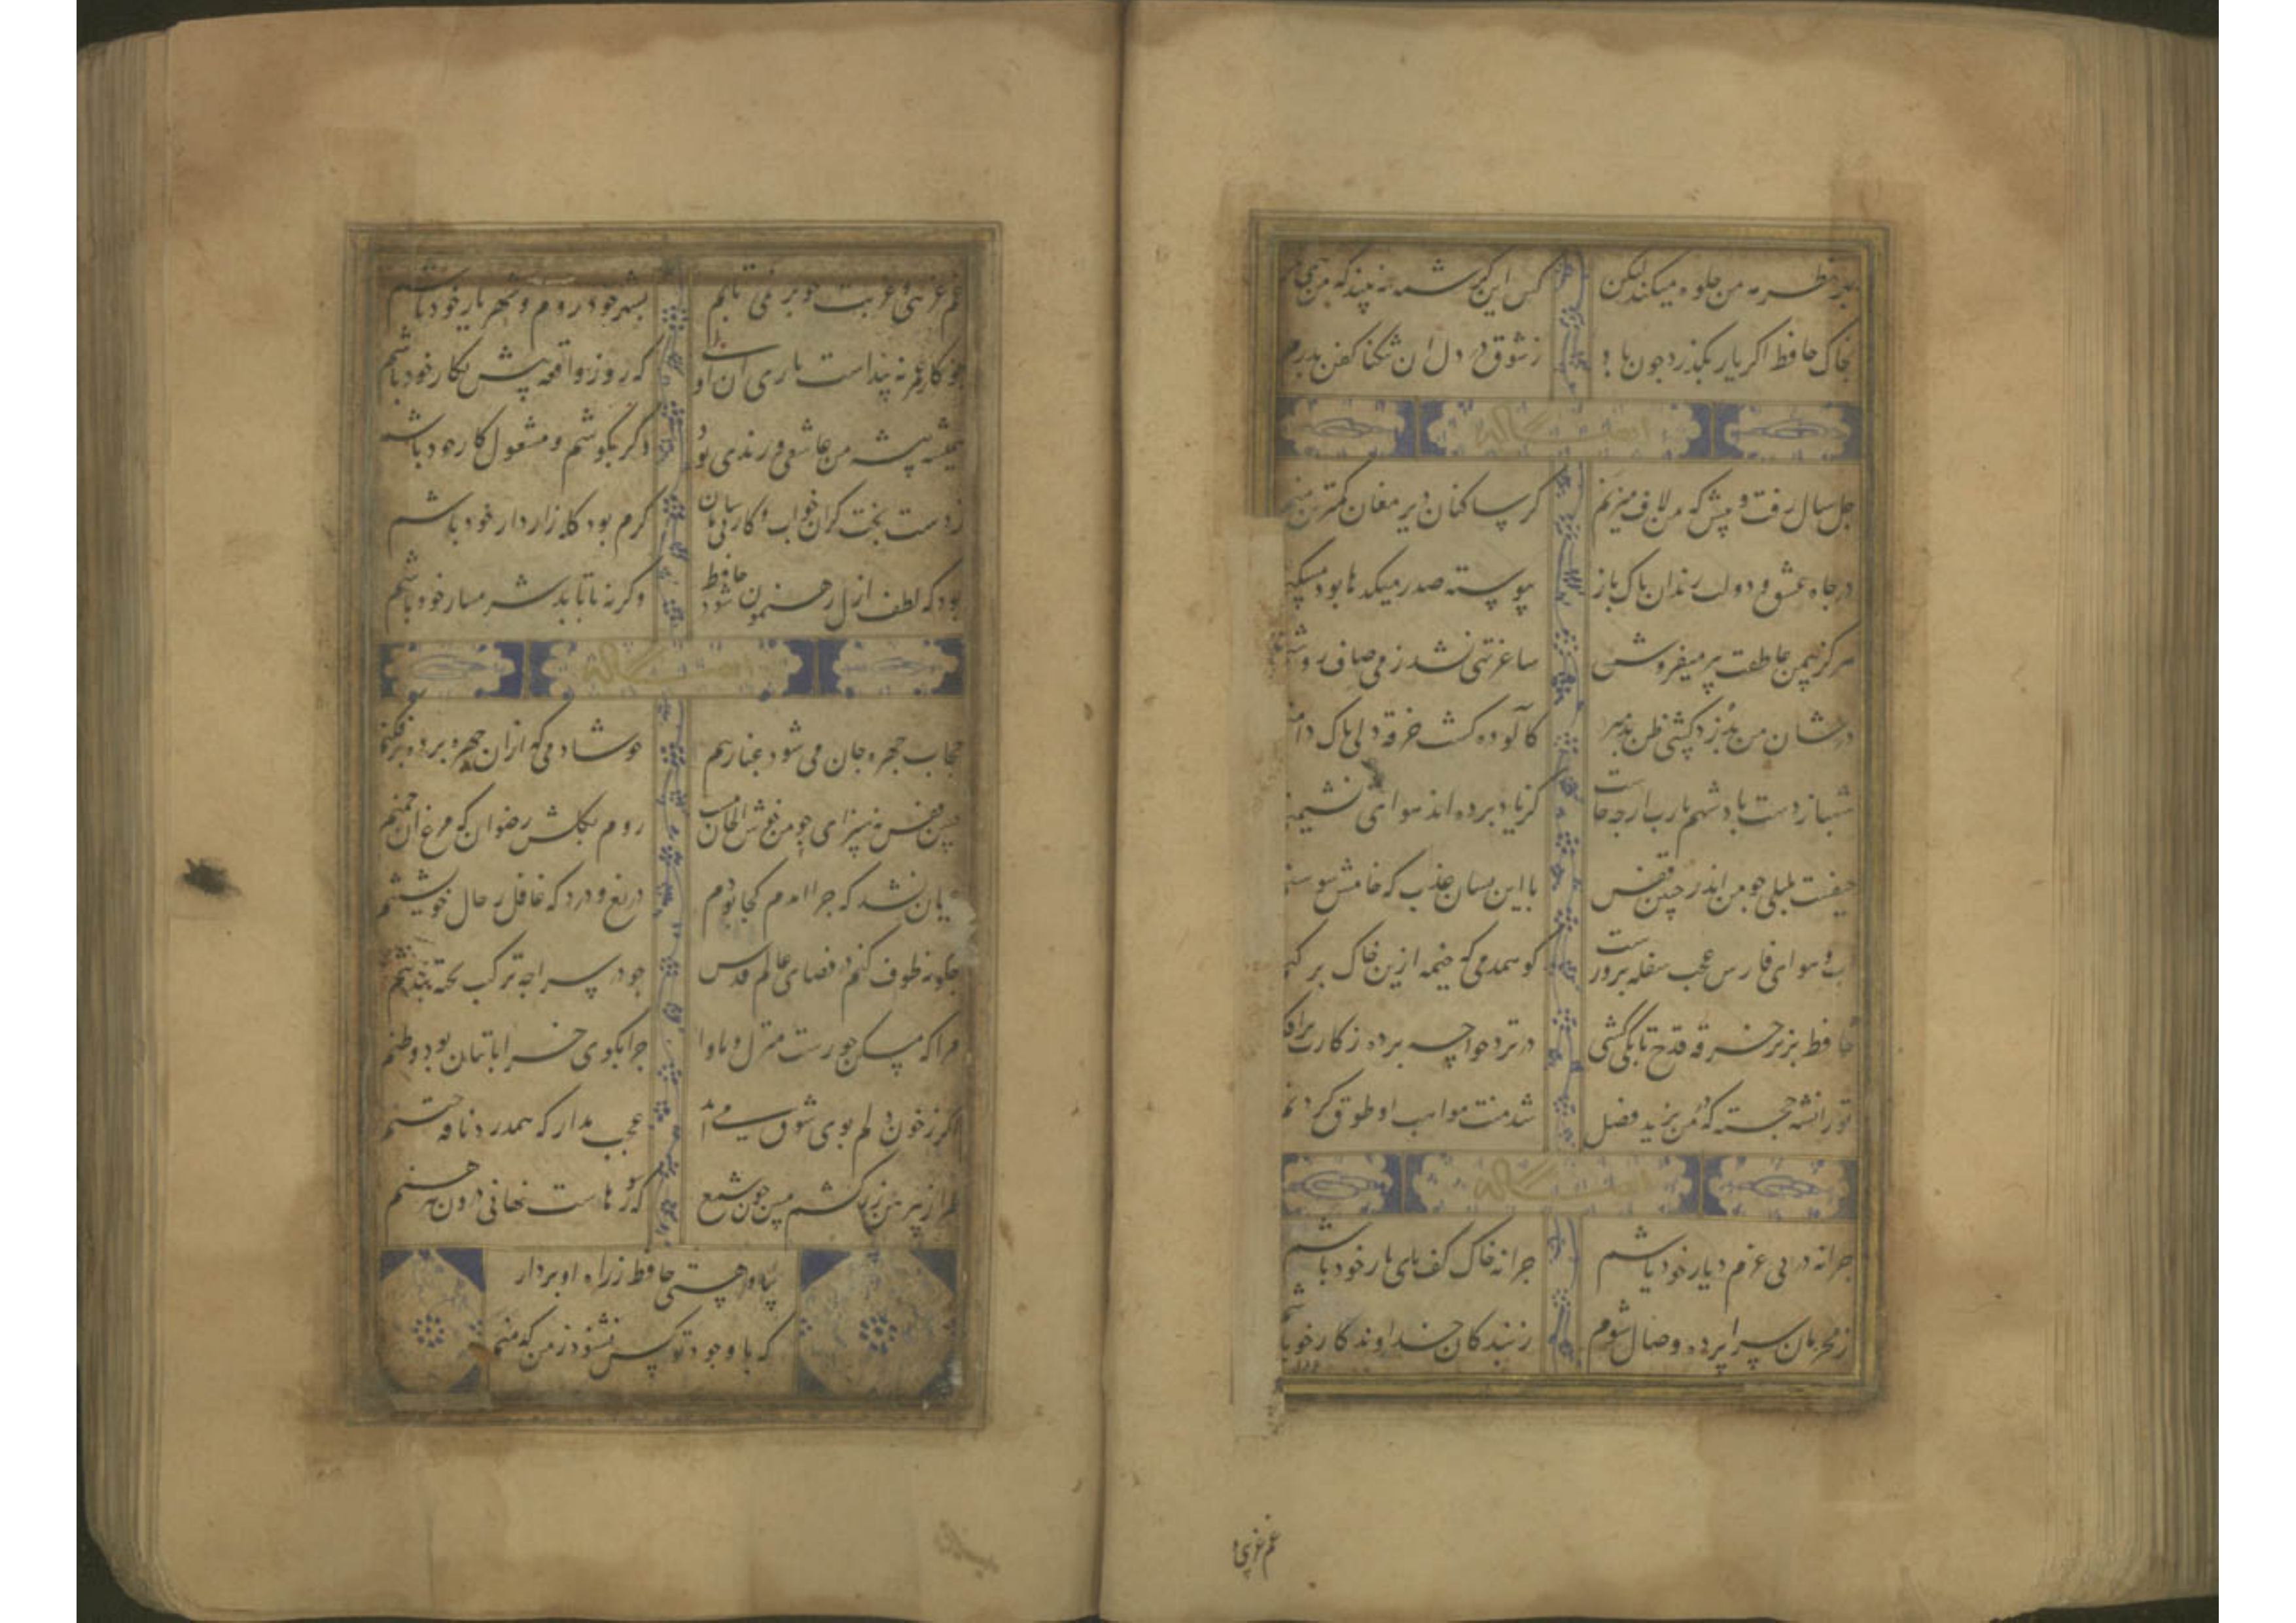 بهر نظر مه من جلوه میکند لیکن کس این کرشمه نه بیند که من همی
بخاک حافظ اکر یار بکذرد جون باد ز شوق در دل ان تنکنا کفن بدرم
جل سال رفت و بیش که من لاف میزنم کز جاکران دیر مغان کمترین منم
در جاه عشق و دولت رندان باک باز پیوسته صدر میکدها بود
هرکز بیمن عاطفت پیر میفروش ساغر تهی نشد ز می صاف روشنم
در شان من بدرد کشی ظن بد مبر کالوده کشت خرقه ولی باک دامنم
شهباز دست بادشهم یارب از جه حالت کز یاد برده اند هوای نشیمنم
حیفست بلبلی جو من اندر جنین قفس با این لسان عذب که خامش جو سوسنم
اب و هوای فارس عجب سفله برورست کو همدمی که خیمه ازین خاک بر کنم
حافظ بزیر خرقه قدح تا بکی کشی در بزم خواجه برده ز کارت برافکنم
تورانشه خجسته که در من یزید فضل شد منت مواهب او طوق کردنم
جرا نه در بی عزم دیار خود باشم جرا نه خاک کف بای یار خود باشم
ز محرمان سرابرده وصال شوم ز بندکان خداوندکار خود باشم
غم غریبی و
غم غریبی و غربت جو بر نمی تابم بشهر خود روم و شهریار خود باشم
جو کار عمر نه بیداست باری ان اولی که روز واقعه پیش نکار خود باشم
همیشه پیشه من عاشقی و رندی بود دکر بکوشم و مشغول کار خود باشم
ز دست بخت کران خواب و کار بی سامان کرم بود کله رازدار خود باشم
بود که لطف ازل رهنمون شود حافظ وکر نه تا بابد شرمسار خود باشم
حجاب جهره جان می شود غبار تنم خوشا دمی که ازان جهره برده برفکنم
جنین قفس نه سزای جو من خوش الحانست روم بکلشن رضوان که مرغ ان جمنم
عیان نشد که جرا امدم کجا بودم دریغ و درد که غافل ز حال خویشتنم
جکونه طوف کنم در فضای عالم قدس جو در سراجه ترکیب تخته بند تنم
مرا که مسکن حورست منزل و ماوا جرا بکوی خراباتیان بود وطنم
اکر ز خون دلم بوی شوق می اید عجب مدار که همدرد نافه ختنم
طراز پیرهن زرکشم مبین جون شمع که سوزهاست نهانی درون پیرهنم
بیا و هستی حافظ ز راه او بردار
که با وجود تو کس نشنود ز من که منم